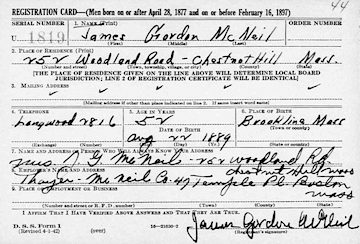 44
REGISTRATION CARD—(Men born on or after April 28, 1877 and on or before February 16, 1897)
SERIAL NUMBER 1. NAME (Print) ORDER NUMBER
U 1819 James Gordon McNeil
(First) (Middle) (Last)
2. PLACE OF RESIDENCE (Print)
252 Woodland Road - Chestnut Hill Mass.
(Number and street) (Town, township, village, or city) (County) (State)
[THE PLACE OF RESIDENCE GIVEN ON THE LINE ABOVE WILL DETERMINE LOCAL BOARD
JURISDICTION; LINE 2 OF REGISTRATION CERTIFICATE WILL BE IDENTICAL]
3. MAILING ADDRESS
[Mailing address if other than place indicated on line 2. If same insert word same]
4. TELEPHONE 5. AGE IN YEARS 6. PLACE OF BIRTH
Longwood 2816 52 Brookline Mass
DATE OF BIRTH (Town or county)
Aug 22 1889
(Mo.) (Day) (Yr.) (State or country)
7. NAME AND ADDRESS OF PERSON WHO WILL ALWAYS KNOW YOUR ADDRESS
Mrs. J G McNeil - 252 Woodland Rd.
Chestnut Hill Mass
8. EMPLOYER'S NAME AND ADDRESS
Thayer - McNeil Co. 47 Temple Pl. Boston
Mass
9. PLACE OF EMPLOYMENT OR BUSINESS
(Number and street or R. F. D. number) (Town) (County) (State)
I AFFIRM THAT I HAVE VERIFIED ABOVE ANSWERS AND THAT THEY ARE TRUE.
D. S. S. Form 1
(Revised 4-1-42) (over)
James Gordon McNeil
(Registrant's signature)